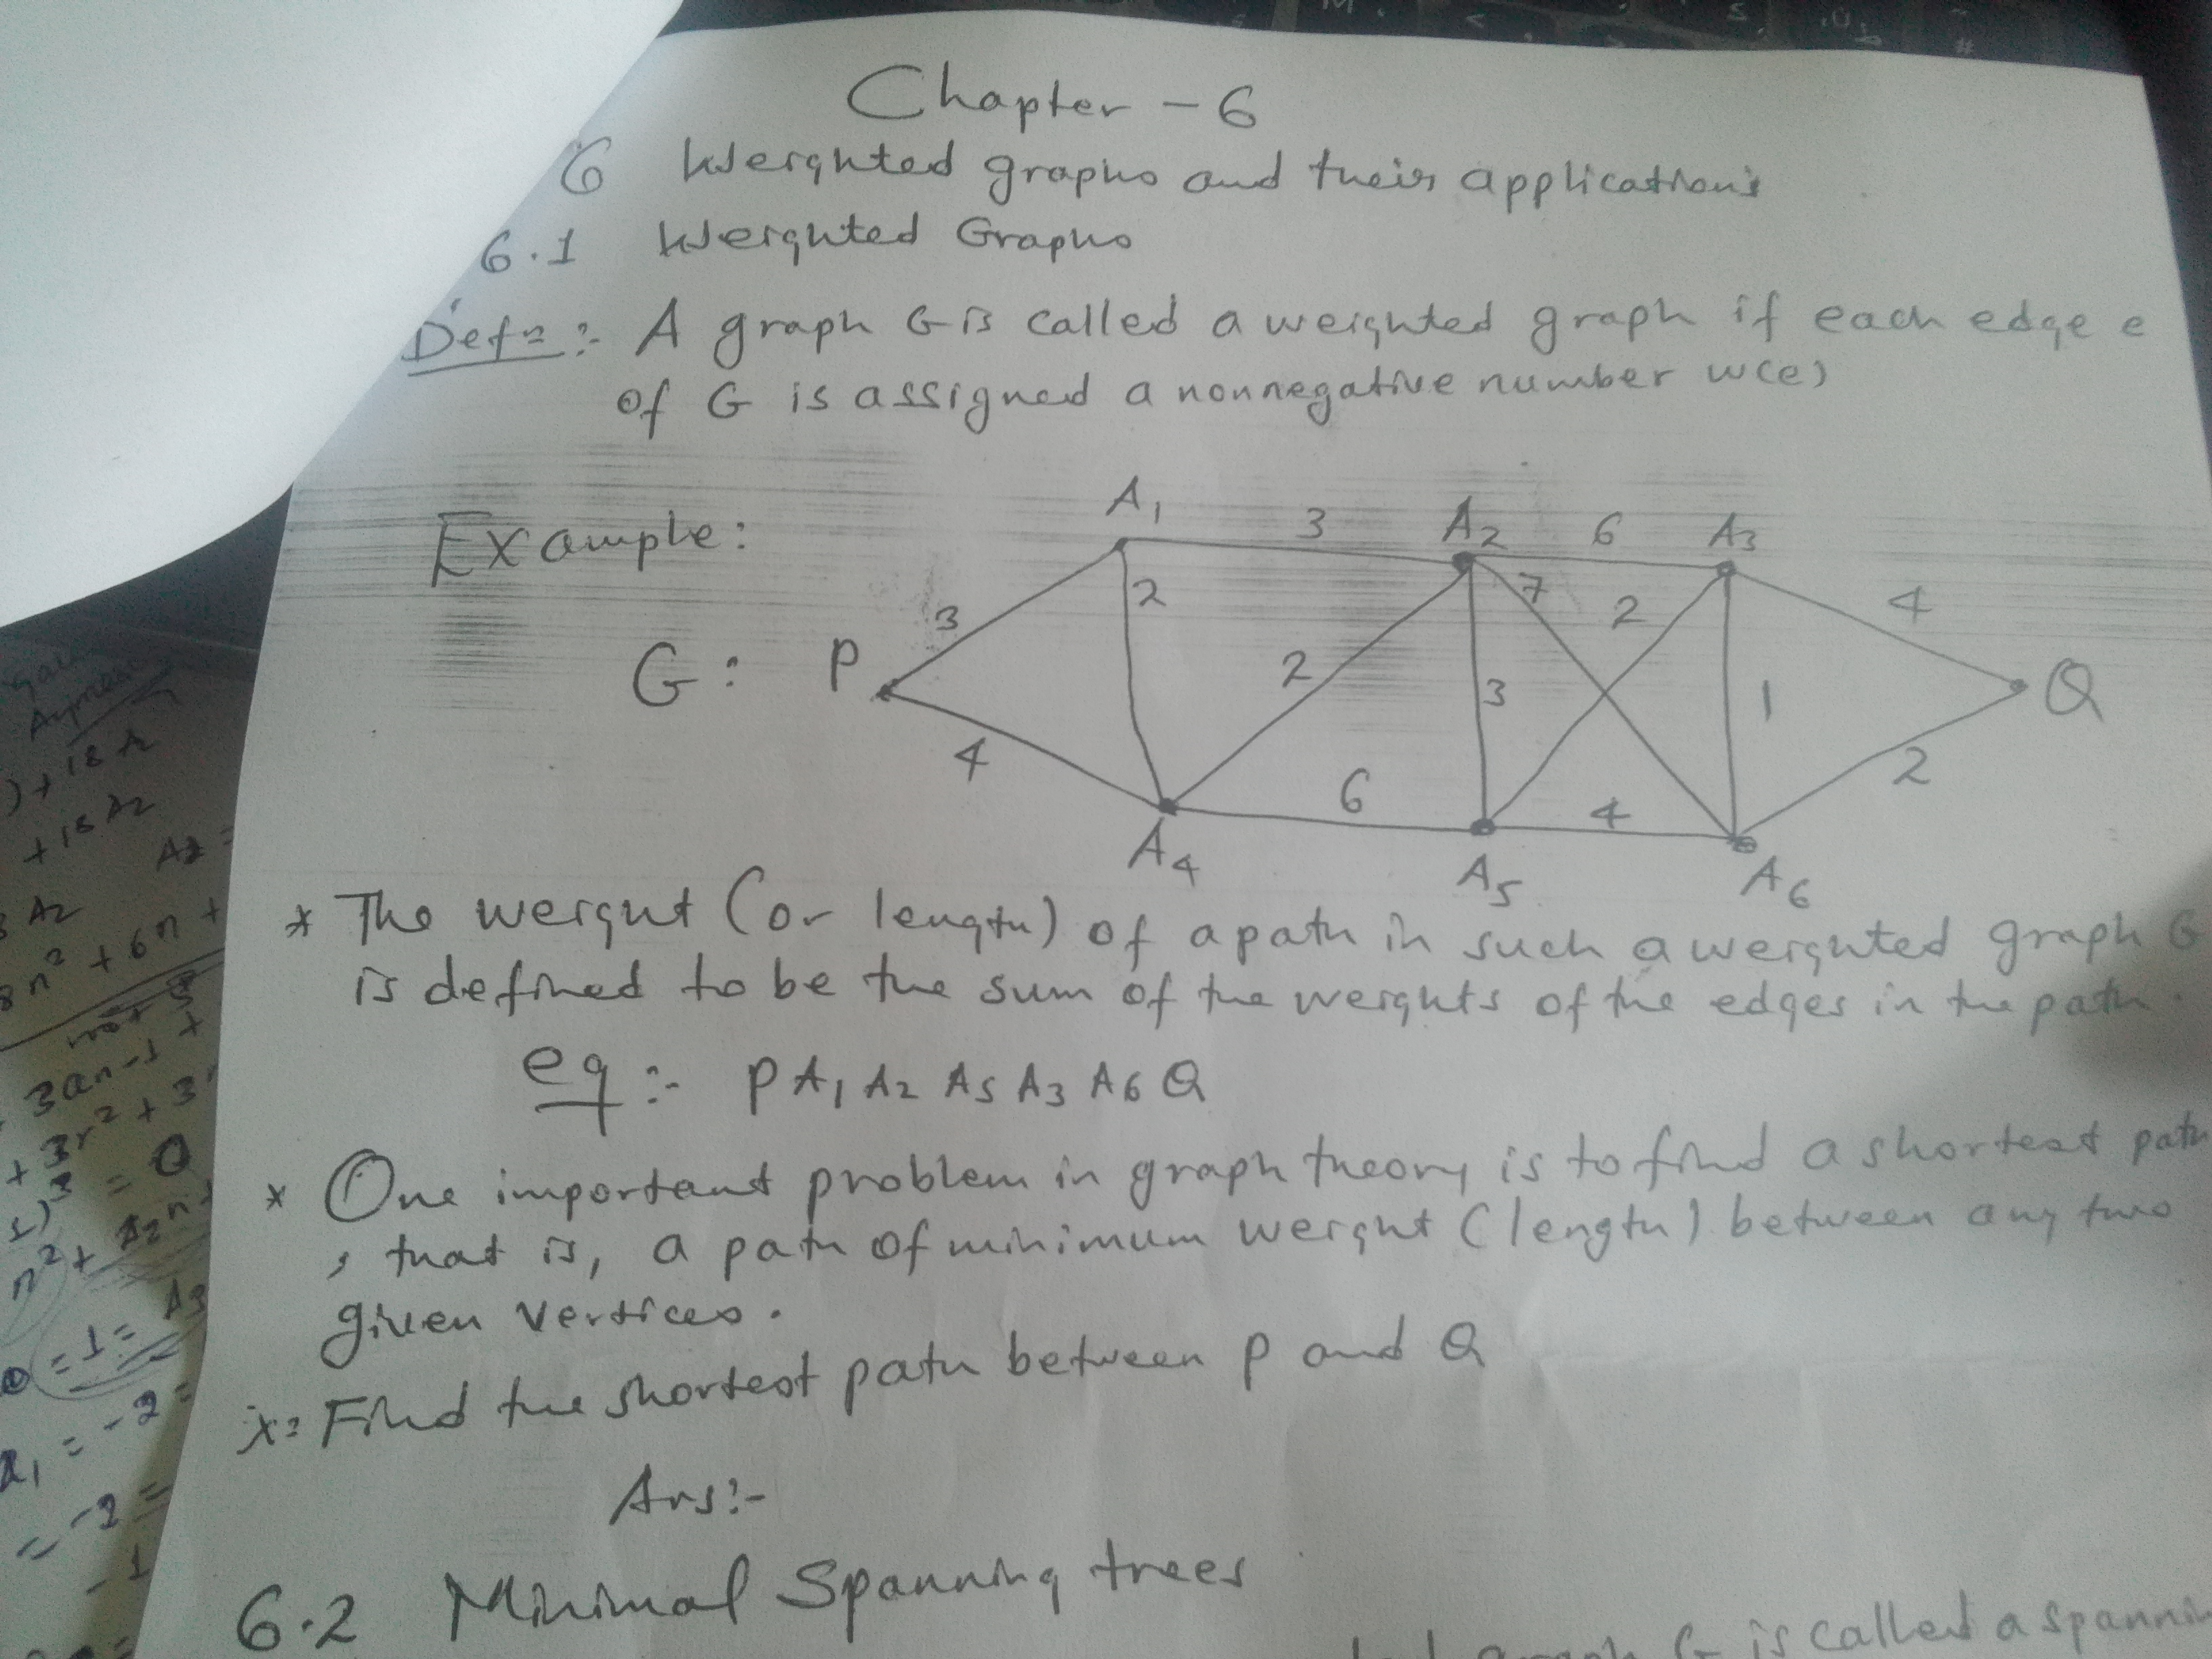 Chapter - 6
6 Weighted graphs and their applications
6.1 Weighted Graphs
Defn:- A graph G is called a weighted graph if each edge e
of G is assigned a nonnegative number w(e)
Example:
A1 3 A2 6 A3
3 2 7 2 4
G: P 2 3 1 Q
4 6 4 2
A4 A5 A6
* The weight (or length) of a path in such a weighted graph G
is defined to be the sum of the weights of the edges in the path.
eg:- P A1 A2 A5 A3 A6 Q
* One important problem in graph theory is to find a shortest path
, that is, a path of minimum weight (length) between any two
given vertices.
x: Find the shortest path between P and Q
Ans:-
6.2 Minimal Spanning trees
graph G is called a spannin
)+18A
+18A2
A2
8n2 + 6n +
3an-1 +
+ 3r2 + 3
= 0
n2 + A2n
A3
= 1 =
a1 = -2 =
= -2 =
- 1